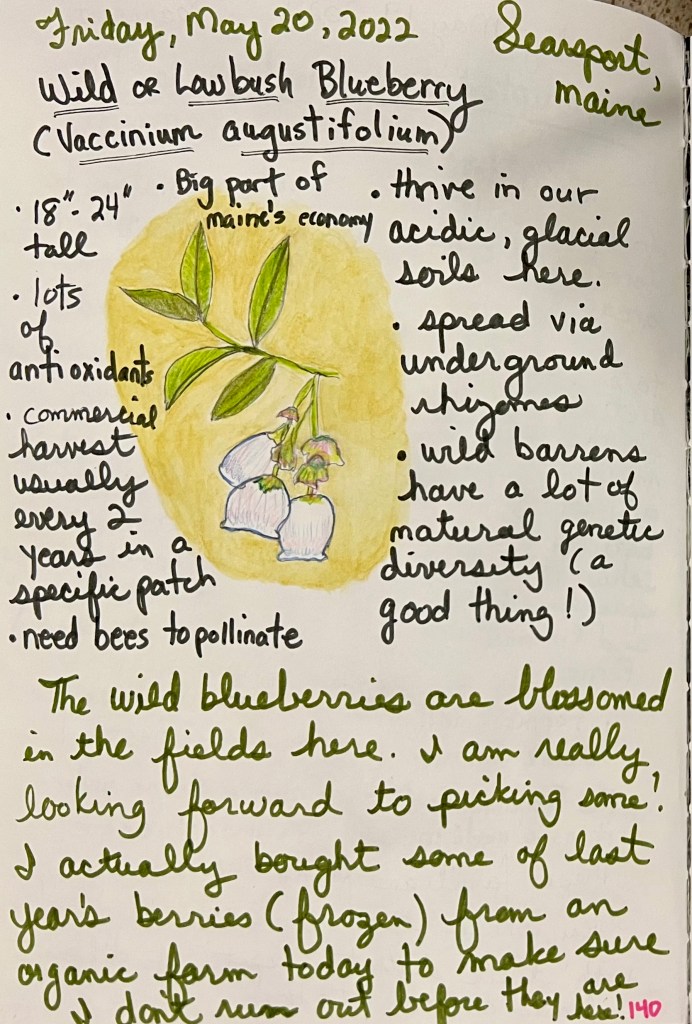 Friday, May 20, 2022
Searsport,
Maine
Wild or Lowbush Blueberry
(Vaccinium augustifolium)
• 18"-24"
tall
• lots
of
antioxidants
• commercial
harvest
usually
every 2
years in a
specific patch
• need bees to pollinate
• Big part of
maine's economy
• thrive in our
acidic, glacial
soils here.
• spread via
underground
rhizomes
• wild barrens
have a lot of
natural genetic
diversity (a
good thing!)
The wild blueberries are blossomed
in the fields here. I am really
looking forward to picking some!
I actually bought some of last
year's berries (frozen) from an
organic farm today to make sure
I don't run out before they are
here!
140